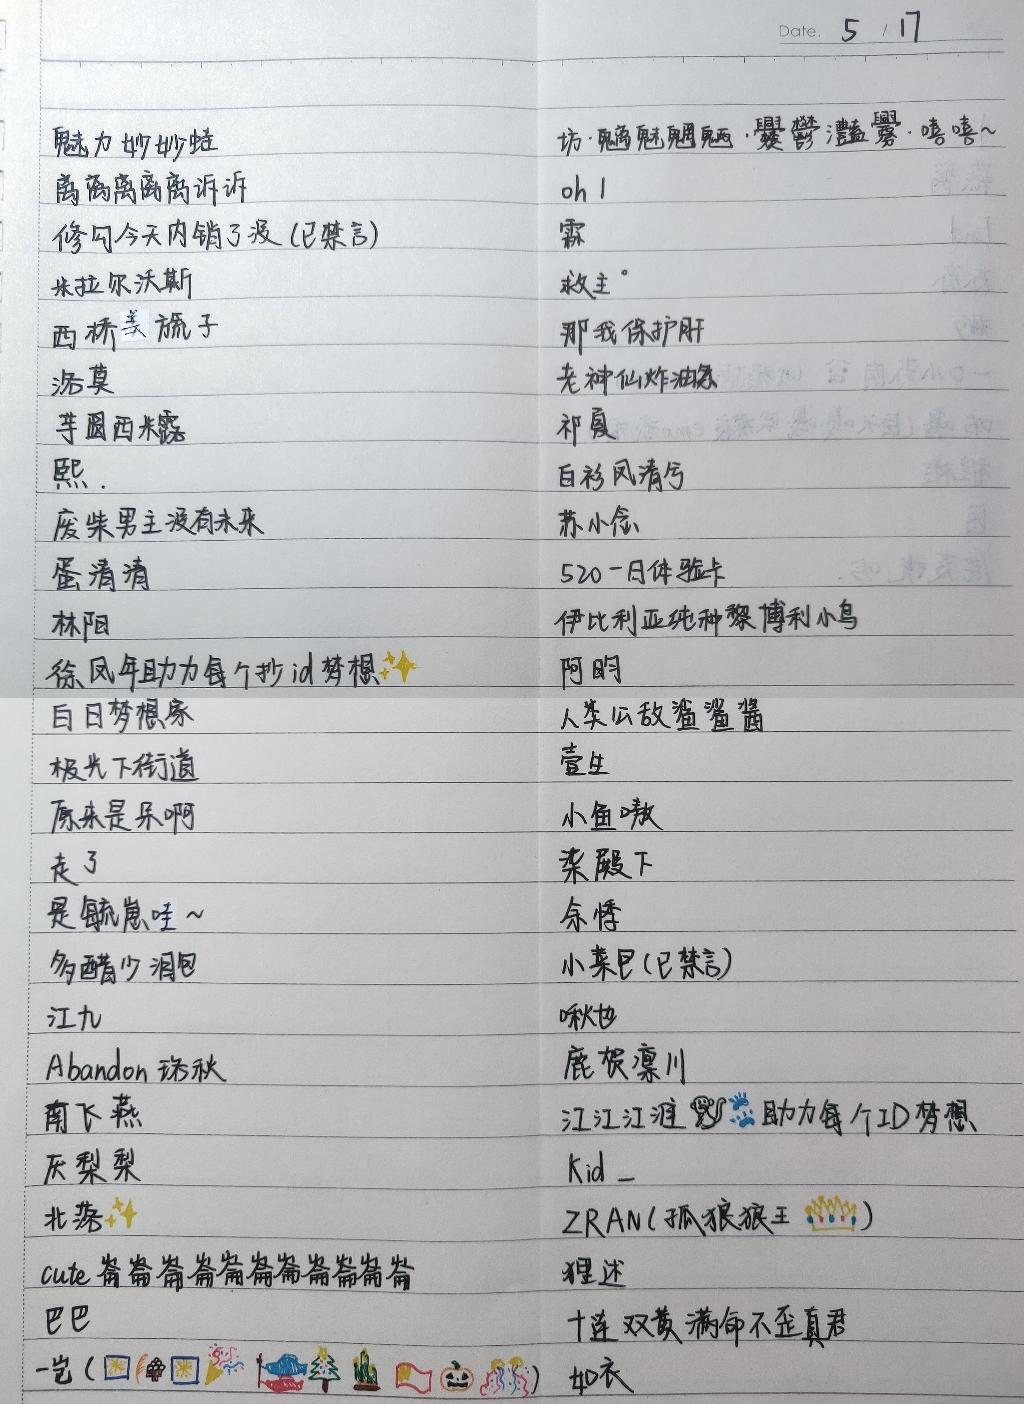 Date. 5 / 17
魅力妙妙蛙
离离离离离诉诉
修勾今天内销了没(已禁言)
米拉尔沃斯
西桥美旒子
洛莫
芋圆西米露
熙.
废柴男主没有未来
蛋清清
林阳
徐凤年助力每个抄id梦想✨
白日梦想家
极光下街道
原来是呆啊
走了
是毓崽哇~
多醋少泪包
江九
Abandon 珞秋
南下燕
厌梨梨
北落✨
cute 崙崙崙崙崙崙崙崙崙崙崙
巴巴
一岂(🎇🎐🎇🎉🎏🎄🎍🎃🎊)
坊·魑魅魍魉·爨鬱灩爨·嘻嘻~
oh l
霖
救主°
那我保护肝
老神仙炸油条
祁夏
白衫风清兮
苏小念
520一日体验卡
伊比利亚纯种黎博利小鸟
阿昀
人类公敌鲨鲨酱
壹生
小鱼嗷
柒殿下
余悸
小菜巴(已禁言)
啾也
鹿贺凛川
江江江涯助力每个ID梦想
Kid _
ZRAN(孤狼狼王👑)
狸述
十连双黄满命不歪真君
如衣